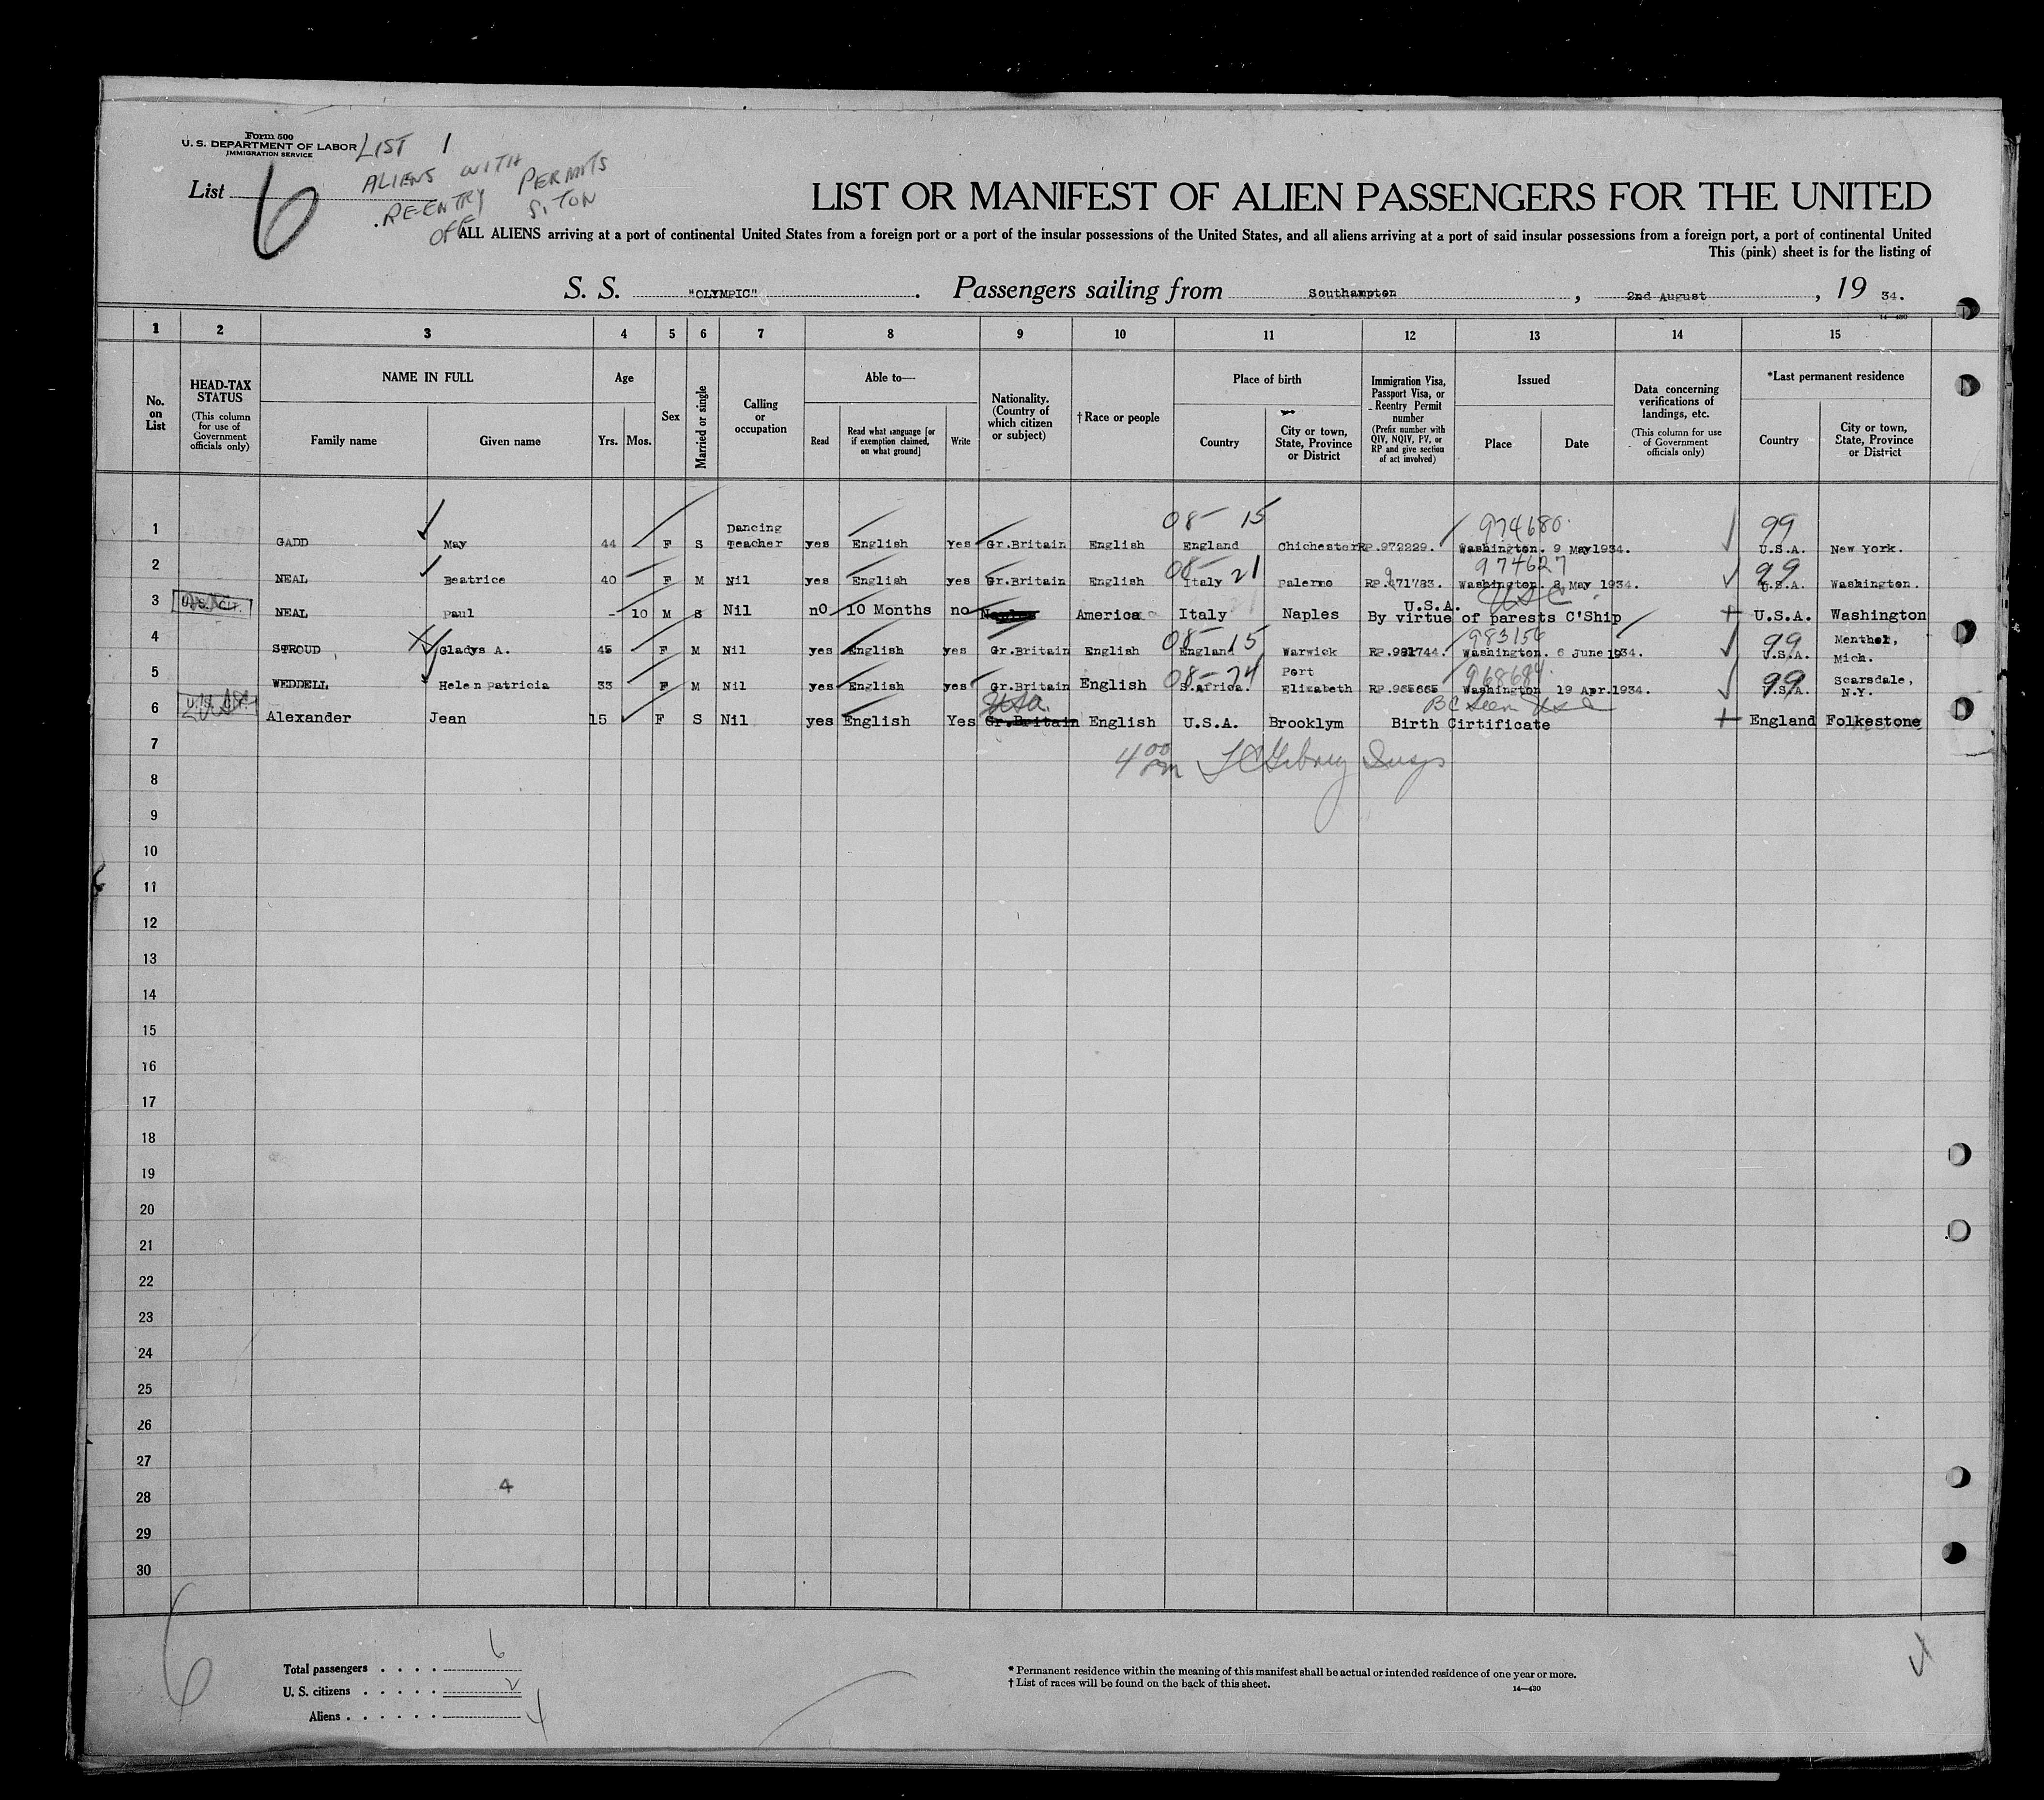 Form 500
U. S. DEPARTMENT OF LABOR
IMMIGRATION SERVICE
LIST 1
ALIENS WITH
RE-ENTRY PERMITS
OFF S. TON
List 6
LIST OR MANIFEST OF ALIEN PASSENGERS FOR THE UNITED
ALL ALIENS arriving at a port of continental United States from a foreign port or a port of the insular possessions of the United States, and all aliens arriving at a port of said insular possessions from a foreign port, a port of continental United
This (pink) sheet is for the listing of
S. S. "OLYMPIC". Passengers sailing from Southampton, 2nd August, 19 34.
14—430
1 2 3 4 5 6 7 8 9 10 11 12 13 14 15
No. on List
HEAD-TAX STATUS
(This column for use of Government officials only)
NAME IN FULL
Family name
Given name
Age
Yrs. Mos.
Sex
Married or single
Calling or occupation
Able to—
Read
Read what language [or if exemption claimed, on what ground]
Write
Nationality. (Country of which citizen or subject)
† Race or people
Place of birth
Country
City or town, State, Province or District
Immigration Visa, Passport Visa, or Reentry Permit number
(Prefix number with QIV, NQIV, PV, or RP and give section of act involved)
Issued
Place
Date
Data concerning verifications of landings, etc.
(This column for use of Government officials only)
*Last permanent residence
Country
City or town, State, Province or District
08- 15 974680 99
1 GADD May 44 F S Dancing Teacher yes English Yes Gr.Britain English England Chichester RP.972229. Washington. 9 May1934. U.S.A. New York.
08- 21 974627 99
2 NEAL Beatrice 40 F M Nil yes English yes Gr.Britain English Italy Palermo RP.971783. Washington. 8 May 1934. U.S.A. Washington.
U.S.A. USC
3 U.S. CIT. NEAL Paul - 10 M S Nil no 10 Months no America Italy Naples By virtue of parests C'Ship U.S.A. Washington
08- 15 983156 99
4 STROUD Gladys A. 45 F M Nil yes English yes Gr.Britain English England Warwick RP.981744. Washington. 6 June 1934. U.S.A. Menthol, Mich.
08-24 968684 99
5 WEDDELL Helen Patricia 33 F M Nil yes English yes Gr.Britain English S.Africa. Port Elizabeth RP.965665 Washington 19 Apr.1934. U.S.A. Scarsdale, N.Y.
USA. BC Seen
6 U.S. CIT. Alexander Jean 15 F S Nil yes English Yes Gr.Britain English U.S.A. Brooklym Birth Cirtificate England Folkestone
7
4 00 pm Insp
8
9
10
11
12
13
14
15
16
17
18
19
20
21
22
23
24
25
26
27
4
28
29
30
6
Total passengers . . . . 6
U. S. citizens . . . . . 2
Aliens . . . . . . 4
* Permanent residence within the meaning of this manifest shall be actual or intended residence of one year or more.
† List of races will be found on the back of this sheet.
14—430